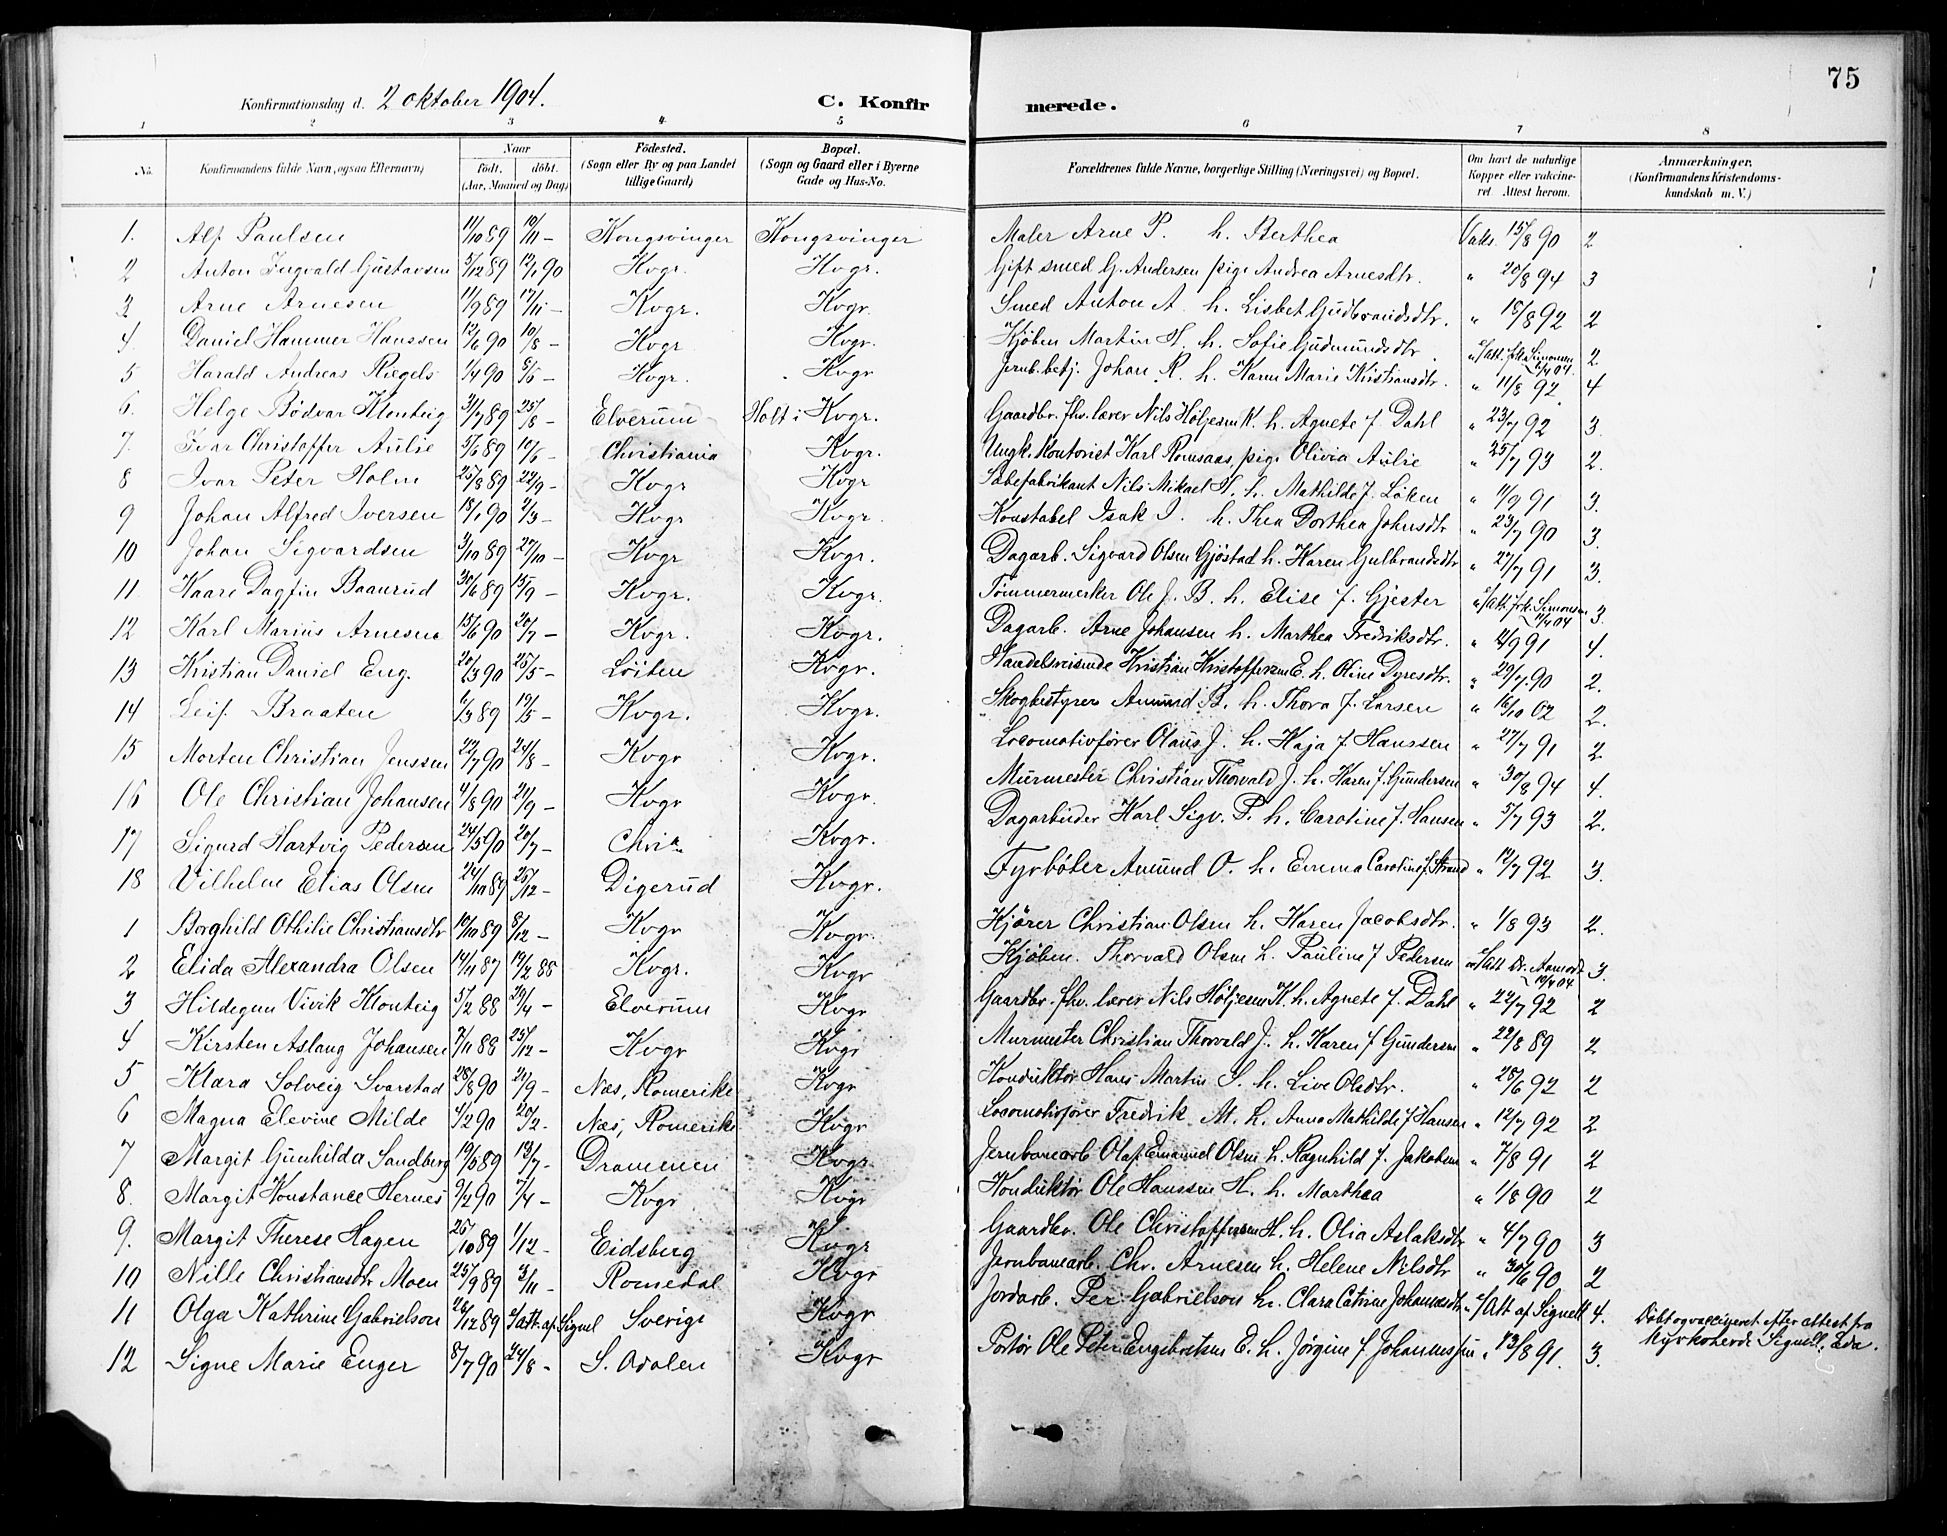 75
Konfirmationsdag d. 2 oktober 1904. C. Konfirmerede.
1 2 3 4 5 6 7 8
No. Konfirmandens fulde Navn, ogsaa Efternavn) Naar födt. döbt. (Aar, Maaned og Dag) Födested. (Sogn eller By og paa Landet tillige Gaard) Bopæl. (Sogn og Gaard eller i Byerne Gade og Hus-No. Forældrenes fulde Navne, borgerlige Stilling (Næringsvei) og Bopæl. Om havt de naturlige Kopper eller vakcineret. Attest herom. Anmærkninger. (Konfirmandens Kristendomskundskab m. V.)
1. Alf Paulsen 11/10 89 10/11 – Kongsvinger Kongsvinger Maler Arne P. h. Berthea Vaks. 15/8 90 2
2 Anton Ingvald Gustavsen 5/12 89 12/1 90 Kvgr. Kvgr. Gift smed G. Andersen pige Andrea Arnesdtr. " 20/8 94 3
3 Arne Arnesen 11/9 89 17/11 – Kvgr. Kvgr. Smed Anton A. h. Lisbet Gudbrandsdtr. " 18/8 92 2
4 Daniel Hammer Hanssen 12/6 90 10/8 – Kvgr Kvgr. Kjöbm Martin H. h. Sofie Gudmundsdtr. " s/Att. frk. Simonsen 2
5 Harald Andreas Riegels 1/4 90 8/6 – Kvgr. Kvgr Jernb.betj. Johan R. h. Karen Marie Kristiansdtr. " 11/8 92 4
6. Helge Bödvar Klonteig 31/7 89 25/8 – Elverum Holt i Kvgr. Gaardbr. fhv. lærer Nils Höljesen K. h. Agnete f. Dahl " 23/7 92 3.
7. Ivar Christoffer Aulie 5/6 89 10/6 – Christiania Kvgr. Ungk. Kontorist Karl Romsaas, pige Olivia Aulie " 25/7 93 2.
8 Ivar Peter Holm 25/8 89 22/9 – Kvgr Kvgr Sæbefabrikant Nils Mikael H. h. Mathilde f. Löken " 11/9 91 3.
9 Johan Alfred Iversen 18/1 90 2/3 – Kvgr Kvgr. Konstabel Isak I. h. Thea Dorthea Johnsdtr " 23/7 90 3.
10 Johan Sigvardsen 3/10 89 27/10 – Kvgr. Kvgr. Dagarb. Sigvard Olsen Gjöstad h. Karen Gulbrandsdtr " 27/7 91 3.
11 Kaare Dagfin Baanrud 30/6 89 15/9 – Kvgr. Kvgr. Tömmermerker Ole J. B. h. Elise f. Gjester " s/Att. frk. Simonsen 3.
12 Karl Marius Arnesen 15/6 90 20/7 – Kvgr. Kvgr. Dagarb. Arne Johansen h. Marthea Fredriksdtr. " 2/9 91 4.
13 Kristian Daniel Eng. 20/3 90 25/5 – Löiten Kvgr. Handelsreisende Kristian Kristoffersen E. h. Oline Dyresdtr. " 29/7 90 2.
14 Leif Braaten 6/3 89 19/5 – Kvgr. Kvgr. Skogbestyrer Amund B. h. Thora f. Larsen " 16/10 02 2.
15 Morten Christian Jenssen 22/7 90 24/8 – Kvgr Kvgr. Locomotivförer Olaus J. h. Kaja f. Hanssen " 27/7 91 2
16 Ole Christian Johansen 4/8 90 21/9 – Kvgr Kvgr. Murmester Christian Thorvald J. h. Karen f. Gundersen " 30/8 94 4.
17 Sigurd Hartvig Pedersen 24/5 90 20/7 – Chria Kvgr. Dagarbeider Karl Sigv. P. h. Caroline f. Hansen " 5/7 93 2.
18 Vilhelm Elias Olsen 24/10 89 26/12 – Digerud Kvgr. Fyrböter Amund O. h. Emma Caroline f. Strand " 12/7 92 3.
1 Borghild Othilie Christiansdtr 10/10 89 8/12 – Kvgr Kvgr. Kjörer Christian Olsen h. Karen Jacobsdtr. " 1/8 93 2.
2 Elida Alexandra Olsen 14/11 87 19/2 88 Kvgr. Kvgr Kjöbm. Thorvald Olsen h. Pauline f Pedersen " s/Att Dr. Aamodt 3.
3 Hildegun Vivik Klonteig 5/2 88 29/4 – Elverum Kvgr Gaardbr. fhv. lærer Nils Höljesen K. h. Agnete f. Dahl " 22/7 92 2
4 Kirsten Aslaug Johansen 7/11 88 25/12 – Kvgr Kvgr Murmester Christian Thorvald J. h. Karen f Gundersen " 22/8 89 2
5 Klara Solveig Svarstad 28/8 90 21/9 – Næs, Romerike Kvgr Konduktör Hans Martin S. h. Live Olsdtr. " 28/6 92 2
6 Magna Elevine Milde 4/2 90 20/2 – Næs, Romerike Kvgr Locomotivförer Fredrik M. h. Anna Mathilde f Hansen " 12/7 92 2
7 Margit Gunhilda Sandberg 19/5 89 13/7 – Drammen Kvgr Jernbanearb Olaf Emanuel Olsen h. Ragnhild f. Jakobsen " 7/8 91 2
8. Margit Konstance Hernes 9/2 90 7/4 – Kvgr Kvgr Konduktör Ole Hanssen H. h. Marthea " 1/8 90 2
9. Margit Therese Hagen 26/10 89 1/12 – Eidsberg Kvgr Gaardbr. Ole Christoffersen H. h. Olia Aslaksdtr " 4/7 90 3
10 Nille Christiansdtr Moen 25/9 89 3/11 – Romedal Kvgr Jernbanearb. Chr. Arnesen h. Helene Nilsdtr " 30/6 90 2
11 Olga Kathrine Gabrielson 28/12 89 s/att. af Signel Sverige Kvgr Jordarb. Per Gabrielson h. Clara Catrine Johansdtr " s/Att af Signell 4. Döbt og vaccineret efter attest fra Kyrkoherde Signell, Eda.
12 Signe Marie Enger 8/7 90 24/8 – S. Odalen Kvgr Portör Ole Peter Engebretsen E. h. Jörgine f Johannessen " 13/8 91. 3.